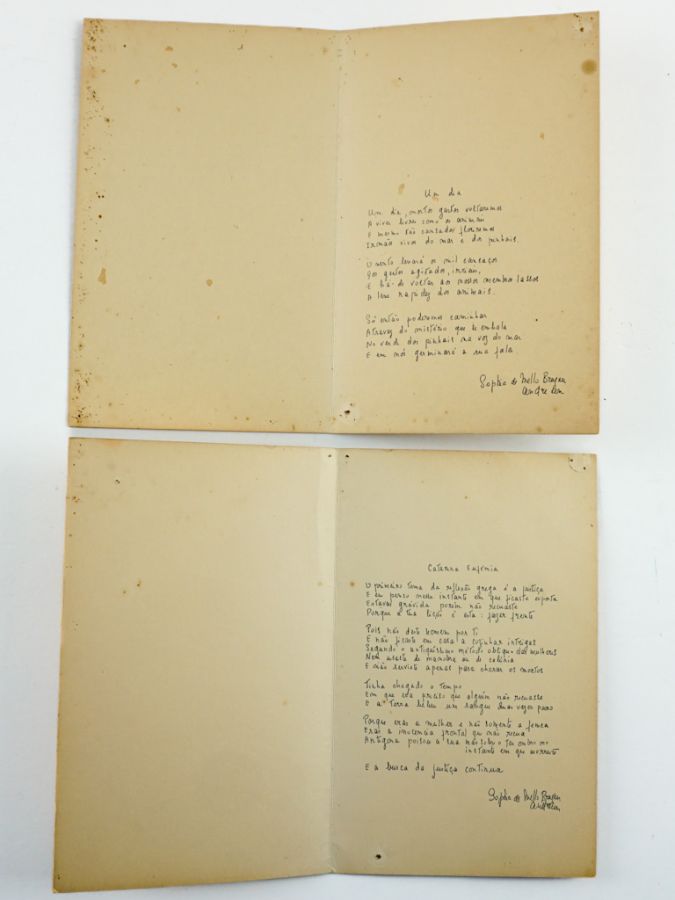 Um dia
Um dia, mortos gastos voltaremos
A viver livres como os animais
E mesmo tão cansados floriremos
Irmãos vivos do mar e dos pinhais.
O vento levará os mil cansaços
Dos gestos agitados, irreais,
E há-de voltar aos nossos membros lassos
A leve rapidez dos animais.
Só então poderemos caminhar
Através do mistério que se embala
No verde dos pinhais na voz do mar
E em nós germinará a sua fala
Sophia de Mello Breyner
Andresen
Catarina Eufémia
O primeiro tema da reflexão grega é a justiça
E eu penso nesse instante em que ficaste exposta
Estavas grávida porém não recuaste
Porque a tua lição é esta: fazer frente
Pois não deste homem por ti
E não ficaste em casa a cozinhar intrigas
Segundo o antiquíssimo método oblíquo das mulheres
Nem usaste de manobra ou de calúnia
E não serviste apenas para chorar os mortos
Tinha chegado o tempo
Em que era preciso que alguém não recuasse
E a terra bebeu um sangue duas vezes puro
Porque eras a mulher e não somente a fêmea
Eras a inocência frontal que não recua
Antígona poisou a sua mão sobre o teu ombro no
instante em que morreste
E a busca da justiça continua
Sophia de Mello Breyner
Andresen